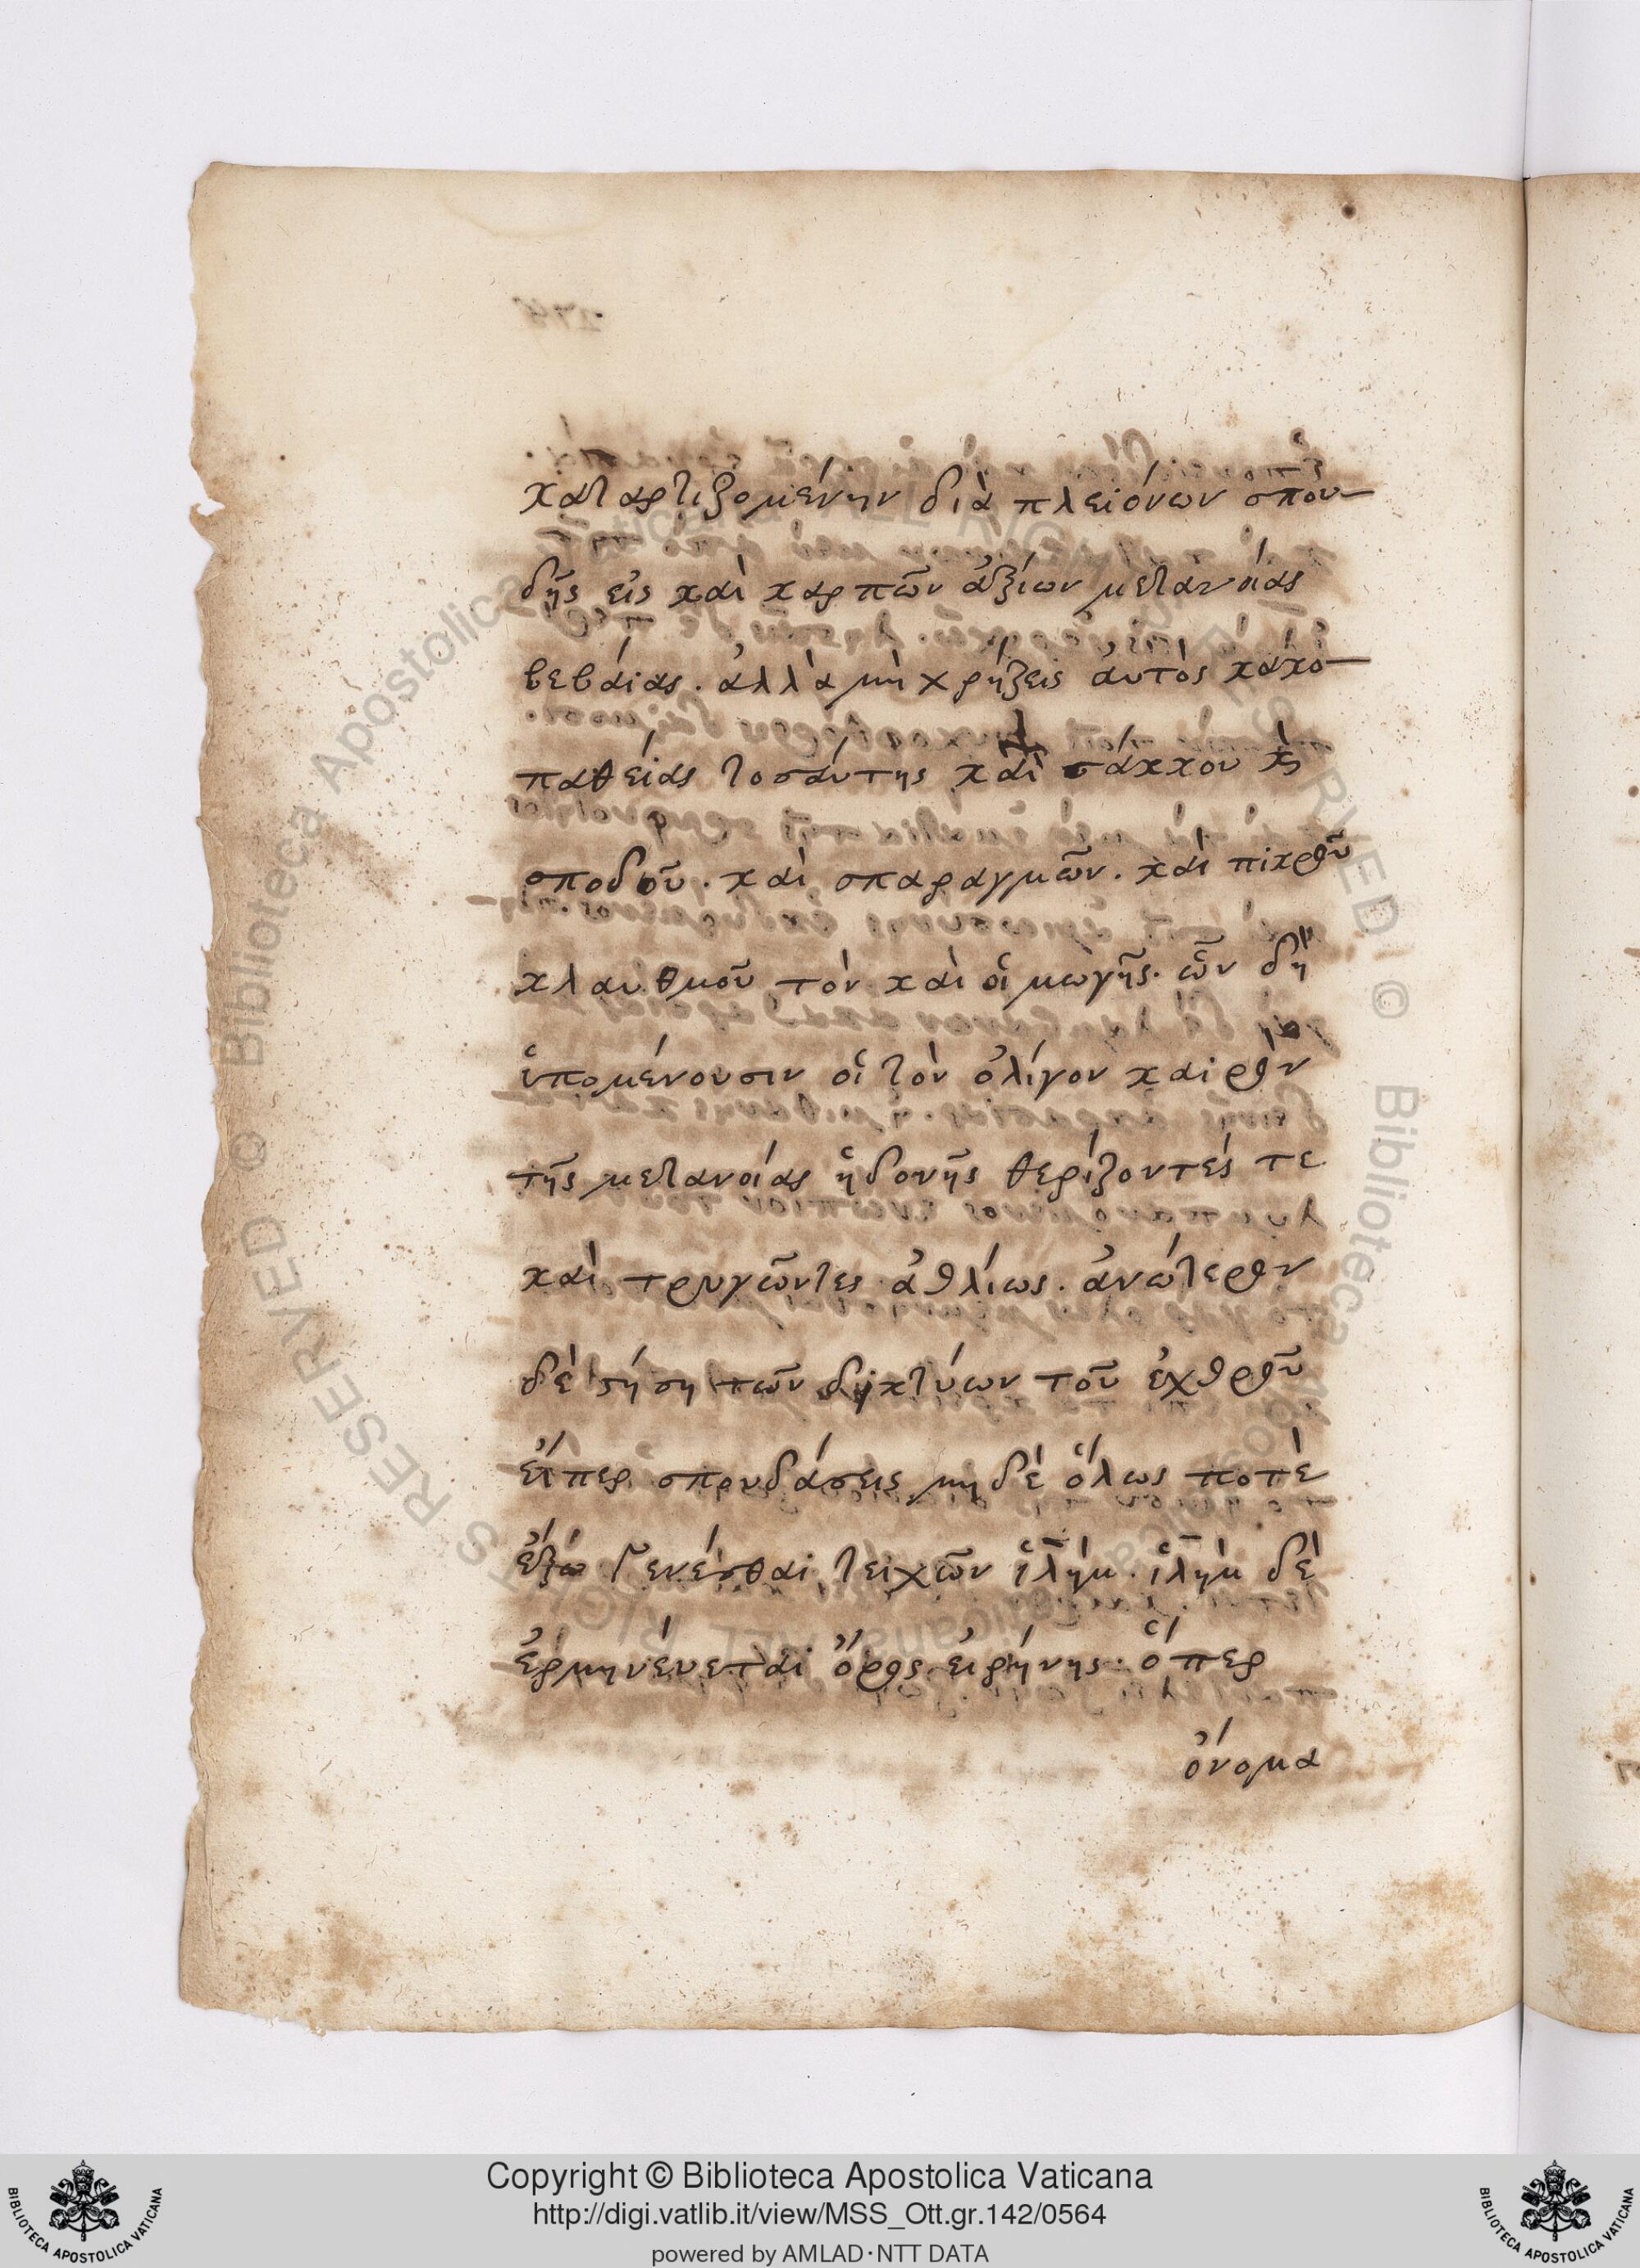 καταρτιζομένην διὰ πλειόνων σπου-
δῆς εἰς καὶ καρπῶν ἀξίων μετανοίας
βεβαίας. ἀλλὰ μὴ χρήζεις ἀυτὸς κακο-
παθείας τοσάυτης καὶ σάκκου κ
σποδοῦ. καὶ σπαραγμῶν. καὶ πικροῦ
κλαυθμοῦ τὸν καὶ οἰμωγῆς. ὧν δὴ
ὑπομένουσιν οἱ τὸν ὀλίγον καιρὸν
τῆς μετανοίας ἡδονῆς θερίζοντές τε
καὶ τρυγῶντες ἀθλίως. ἀνώτερον
δὲ στήση τῶν δικτύων τοῦ ἐχθροῦ
εἴπερ σπουδάσεις μηδὲ ὅλως ποτὲ
ἔξω γενέσθαι τειχῶν ἱλὴμ. ἱλὴμ δὲ
ἑρμηνέυεται ὄρος ειρήνης. ὅπερ
ὄνομα
Copyright © Biblioteca Apostolica Vaticana
http://digi.vatlib.it/view/MSS_Ott.gr.142/0564
powered by AMLAD·NTT DATA
BIBLIOTECA APOSTOLICA VATICANA
BIBLIOTECA APOSTOLICA VATICANA